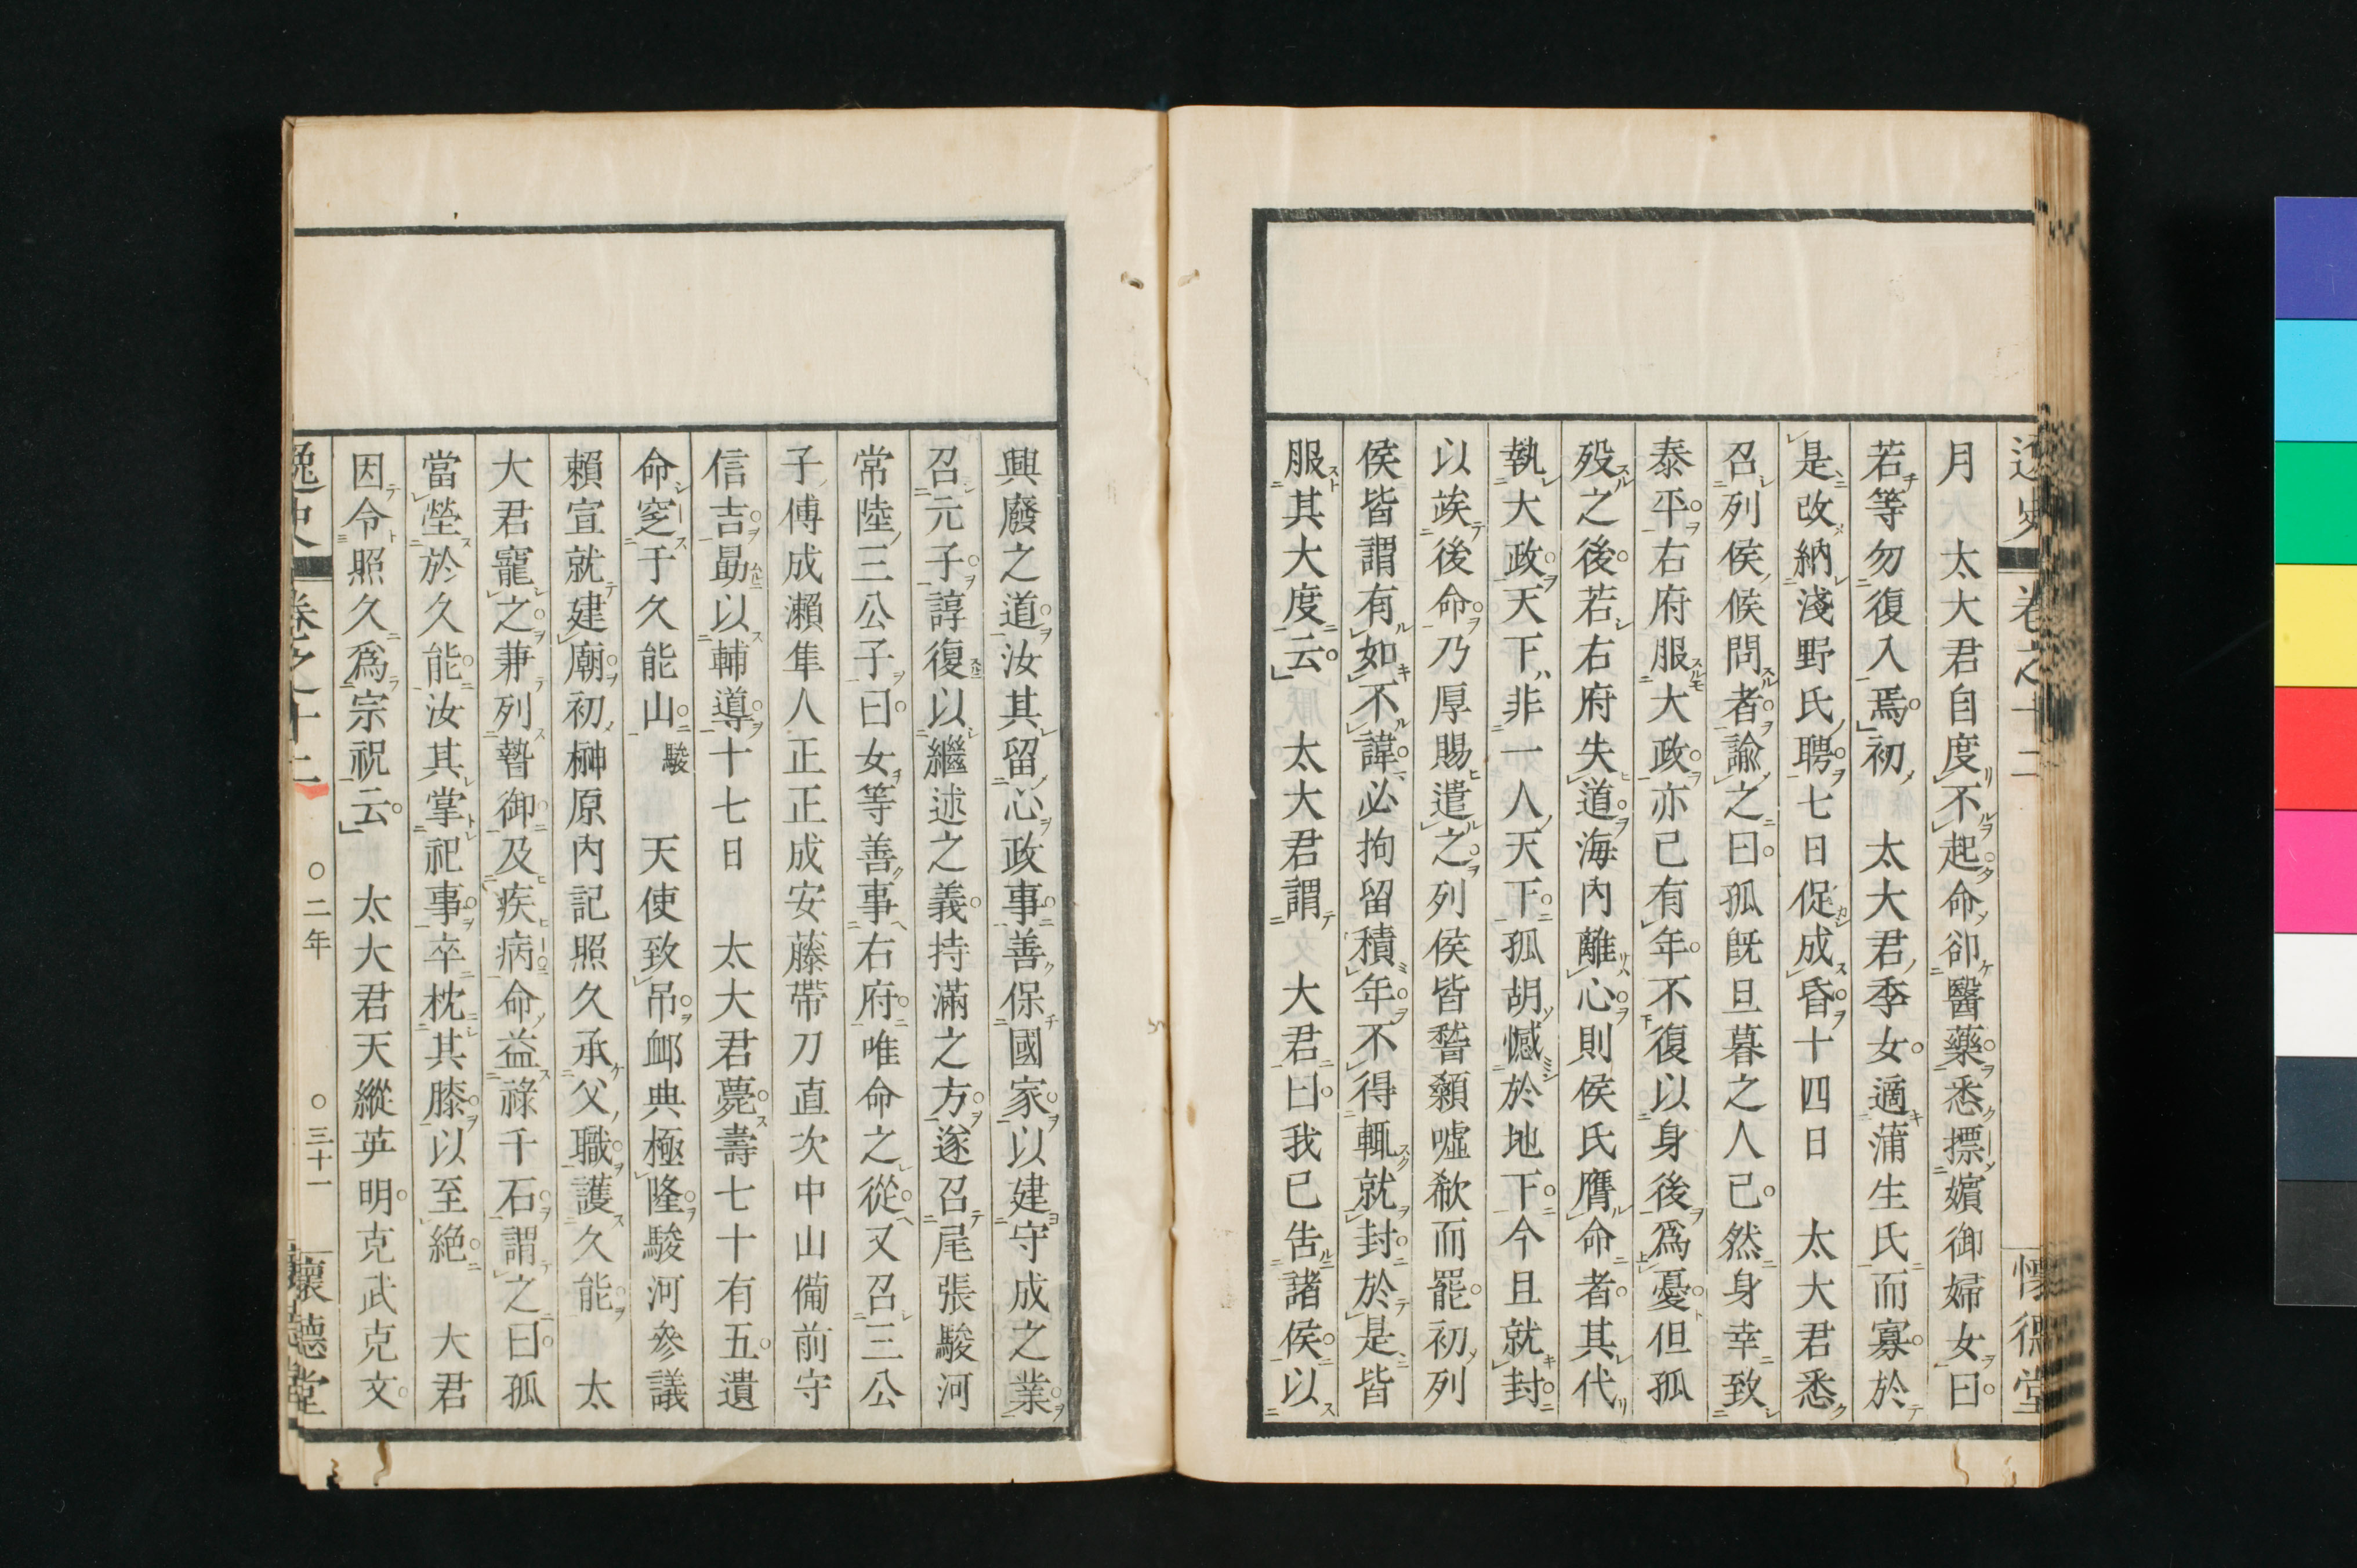 逸史 卷之十二 懷德堂
月 太大君自度不起命卻醫藥悉摽嬪御婦女曰
若等勿復入焉初 太大君季女適蒲生氏而寡於
是改納淺野氏聘七日促成昏十四日 太大君悉
召列侯候問者諭之曰孤既旦暮之人已然身幸致
泰平右府服大政亦已有年不復以身後爲憂但孤
歿之後若右府失道海內離心則侯氏膺命者其代
執大政天下非一人天下孤胡憾於地下今且就封
以俟後命乃厚賜遣之列侯皆嚭顙噓欷而罷初列
侯皆謂有如不諱必拘留積年不得輒就封於是皆
服其大度云 太大君謂 大君曰我已告諸侯以
興廢之道汝其留心政事善保國家以建守成之業
召元子諄復以繼述之義持滿之方遂召尾張駿河
常陸三公子曰女等善事右府唯命之從又召三公
子傅成瀨隼人正正成安藤帶刀直次中山備前守
信吉勗以輔導十七日 太大君薨壽七十有五遺
命窆于久能山駿 天使致吊卹典極隆駿河參議
賴宣就建廟初榊原內記照久承父職護久能 太
大君寵之兼列暬御及疾病命益祿千石謂之曰孤
當塋於久能汝其掌祀事卒枕其膝以至絕 大君
因令照久爲宗祝云 太大君天縱英明克武克文
逸史 卷之十二 ○二年 ○三十一 懷德堂